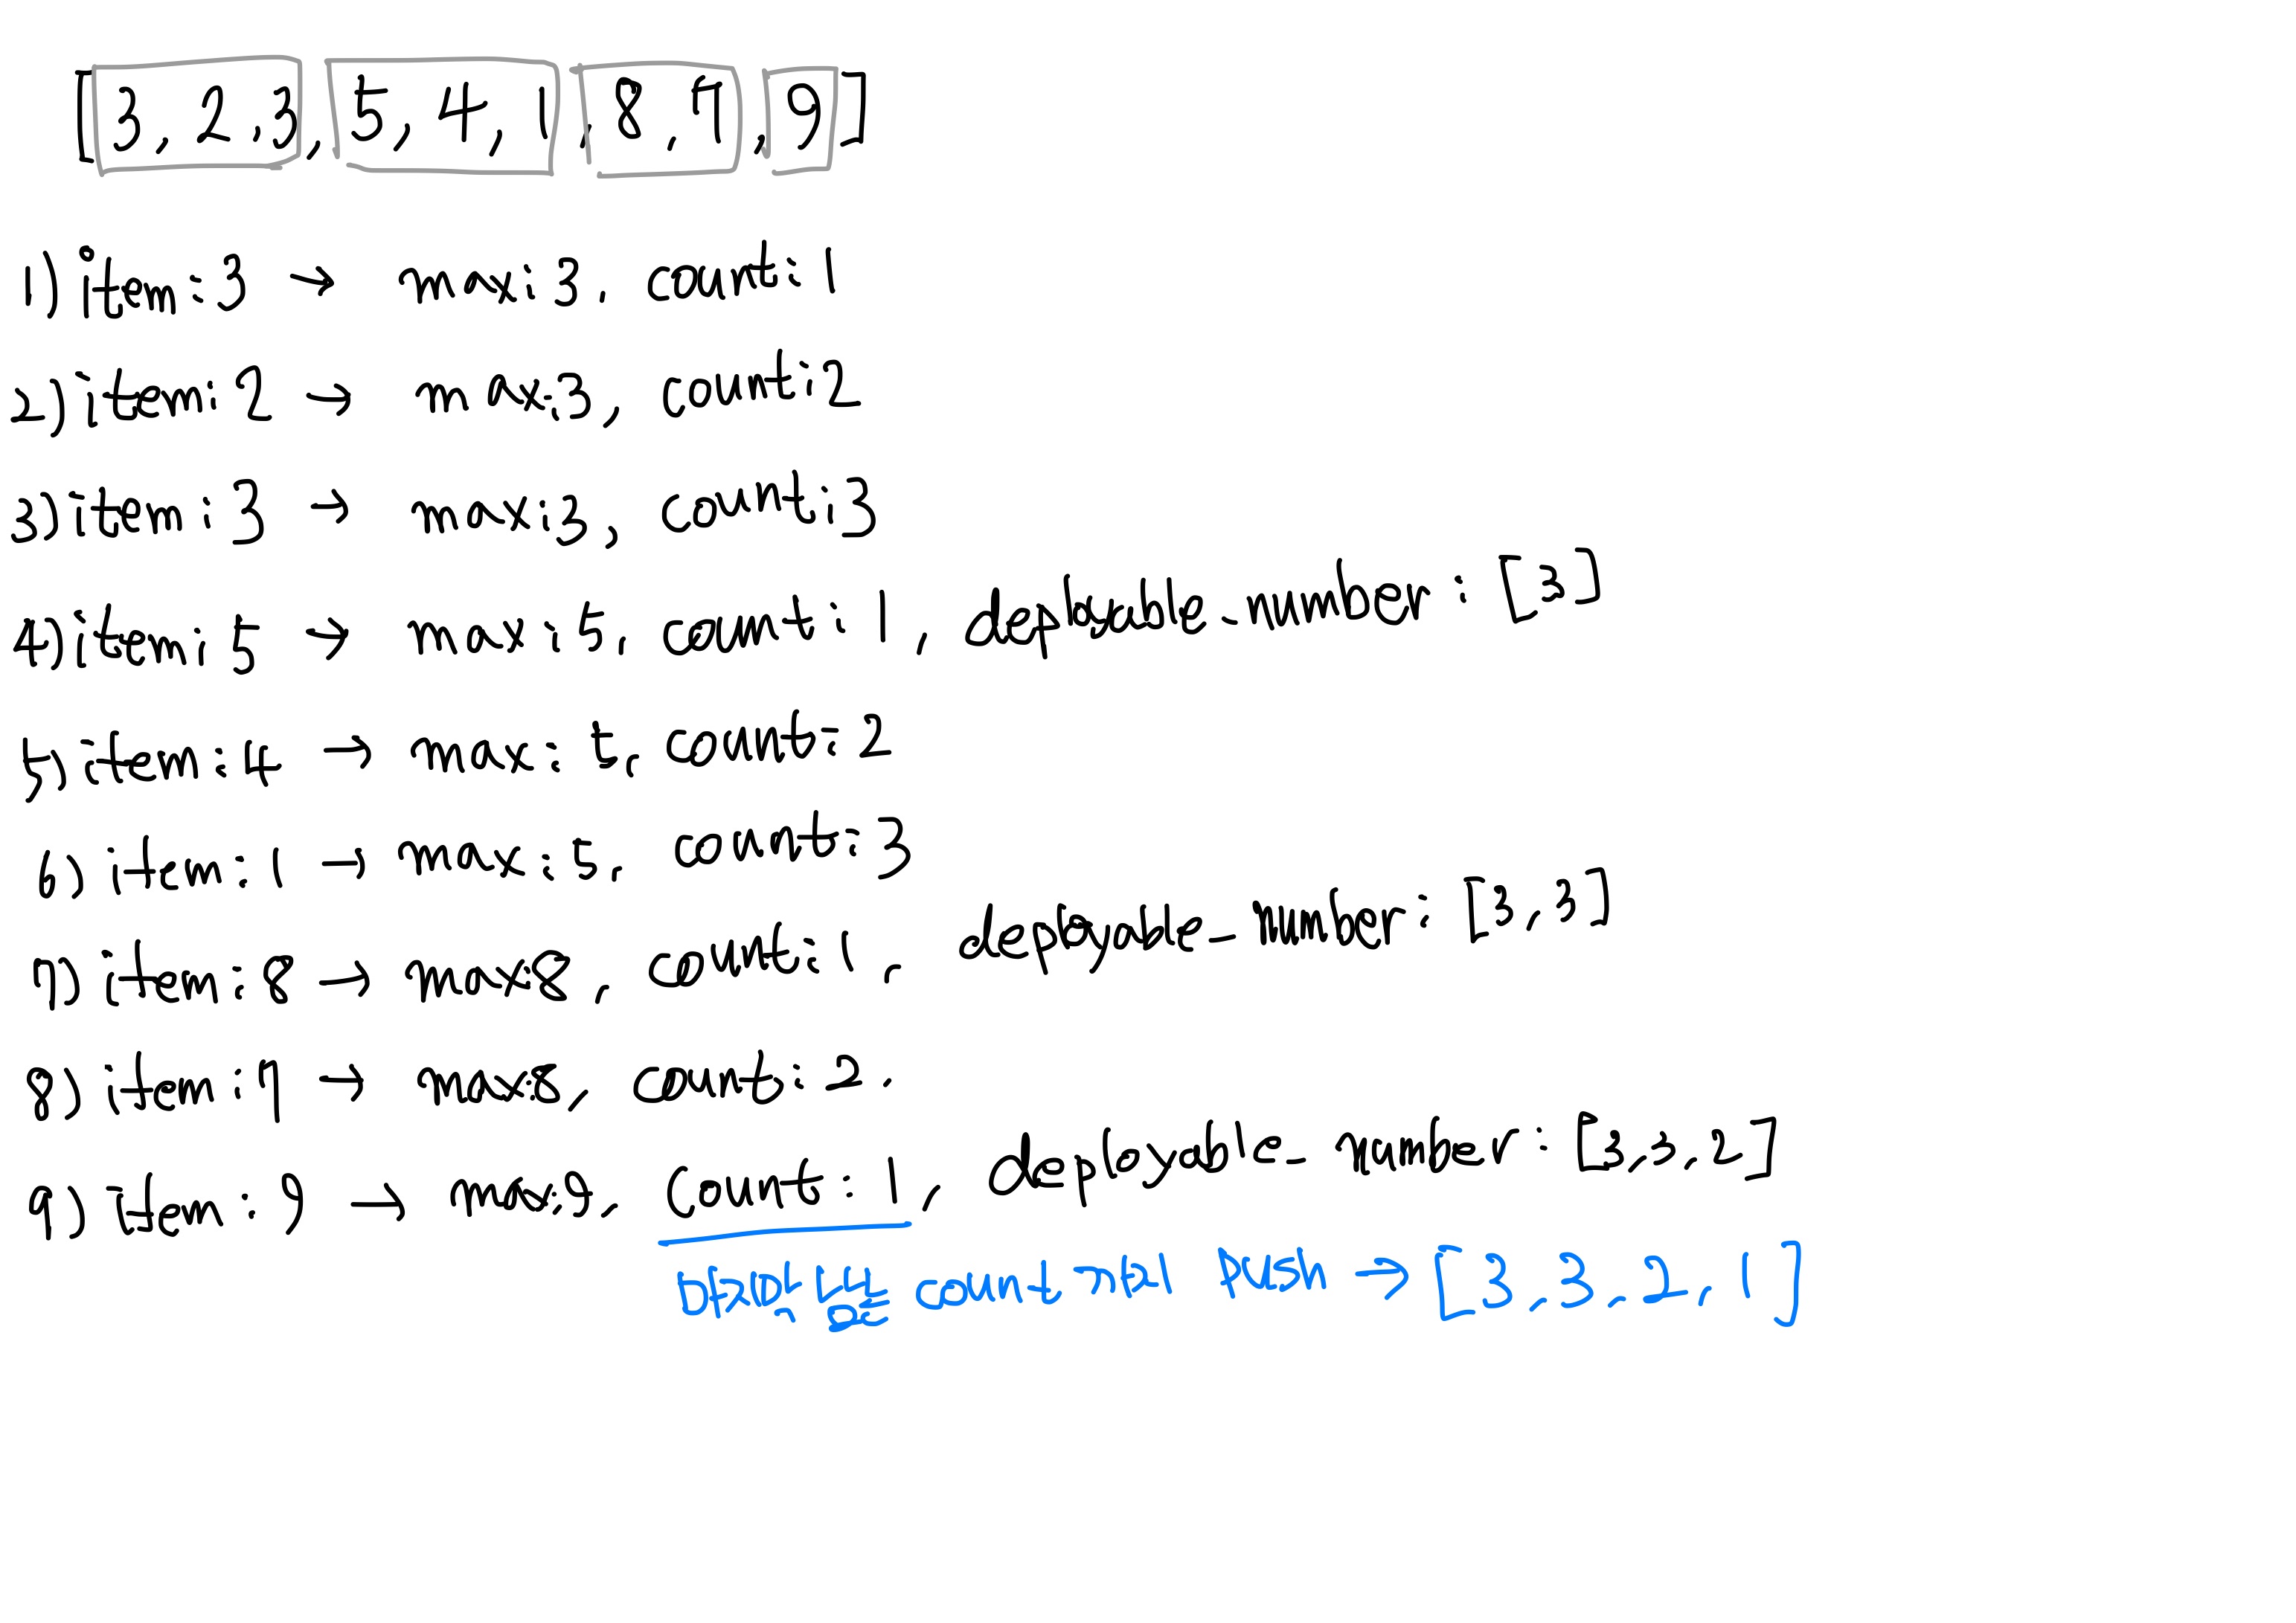 [3, 2, 3, 5, 4, 1, 8, 7, 9]
1) item:3 → max:3, count:1
2) item:2 → max:3, count:2
3) item:3 → max:3, count:3
4) item:5 → max:5, count:1, deployable_number:[3]
5) item:4 → max:5, count:2
6) item:1 → max:5, count:3
7) item:8 → max:8, count:1, deployable_number:[3,3]
8) item:7 → max:8, count:2.
9) item:9 → max:9, count:1, deployable_number:[3,3,2]
마지막 남은 count까지 push → [3,3,2,1]